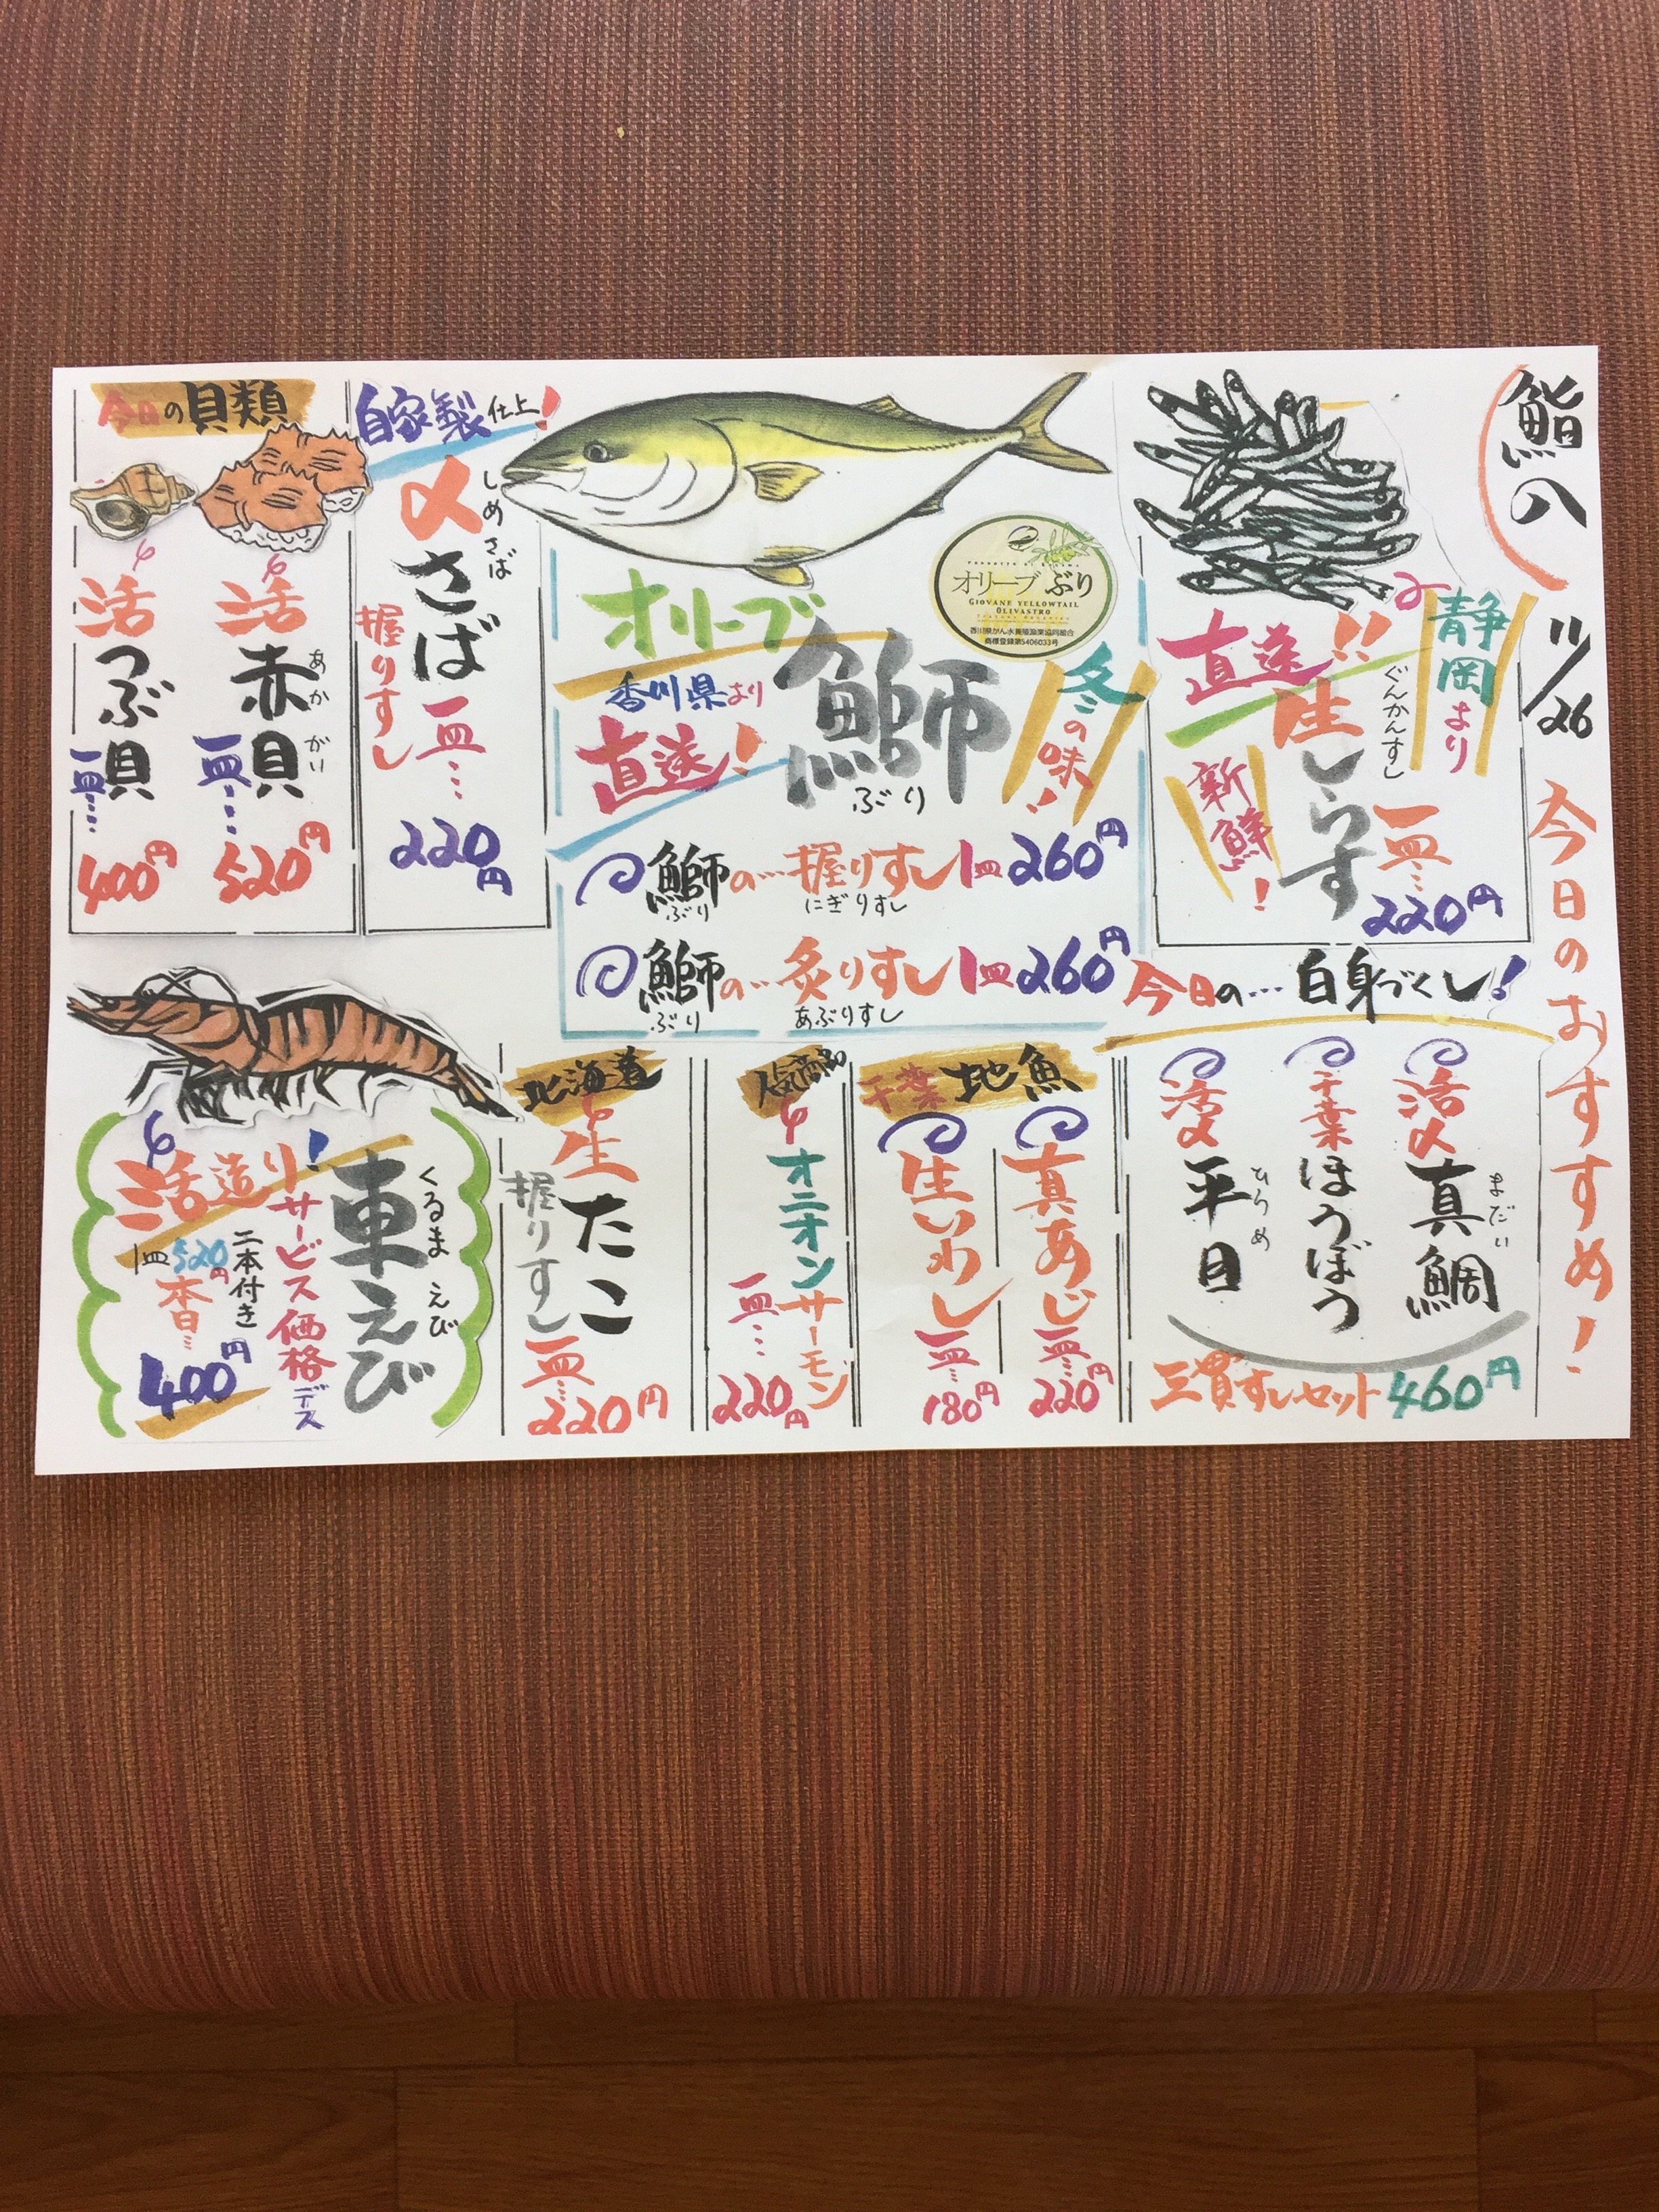 鮨八
11/26
今日のおすすめ!
静岡より
直送!!
生しらす
ぐんかんすし
新鮮!
一皿…
220円
オリーブ
鰤
ぶり
香川県より
直送!
冬の味!
オリーブぶり
GIOVANE YELLOWTAIL
OLIVASTRO
香川県かん水養殖漁業協同組合
商標登録第5406033号
鰤の…握りすし1皿260円
ぶり にぎりすし
鰤の…炙りすし1皿260円
ぶり あぶりすし
自家製仕上!
〆さば
しめさば
握りすし
一皿…
220円
今日の貝類
活赤貝
あかがい
一皿…
520円
活つぶ貝
一皿…
400円
今日の…白身づくし!
活〆真鯛
まだい
千葉ほうぼう
活〆平目
ひらめ
三貫すしセット460円
千葉地魚
真あじ
一皿…
220円
生いわし
一皿…
180円
人気商品
オニオンサーモン
一皿…
220円
北海道
生たこ
握りすし
一皿…
220円
車えび
くるまえび
活造り!
サービス価格デス
二本付き
1皿520円
本日…
400円